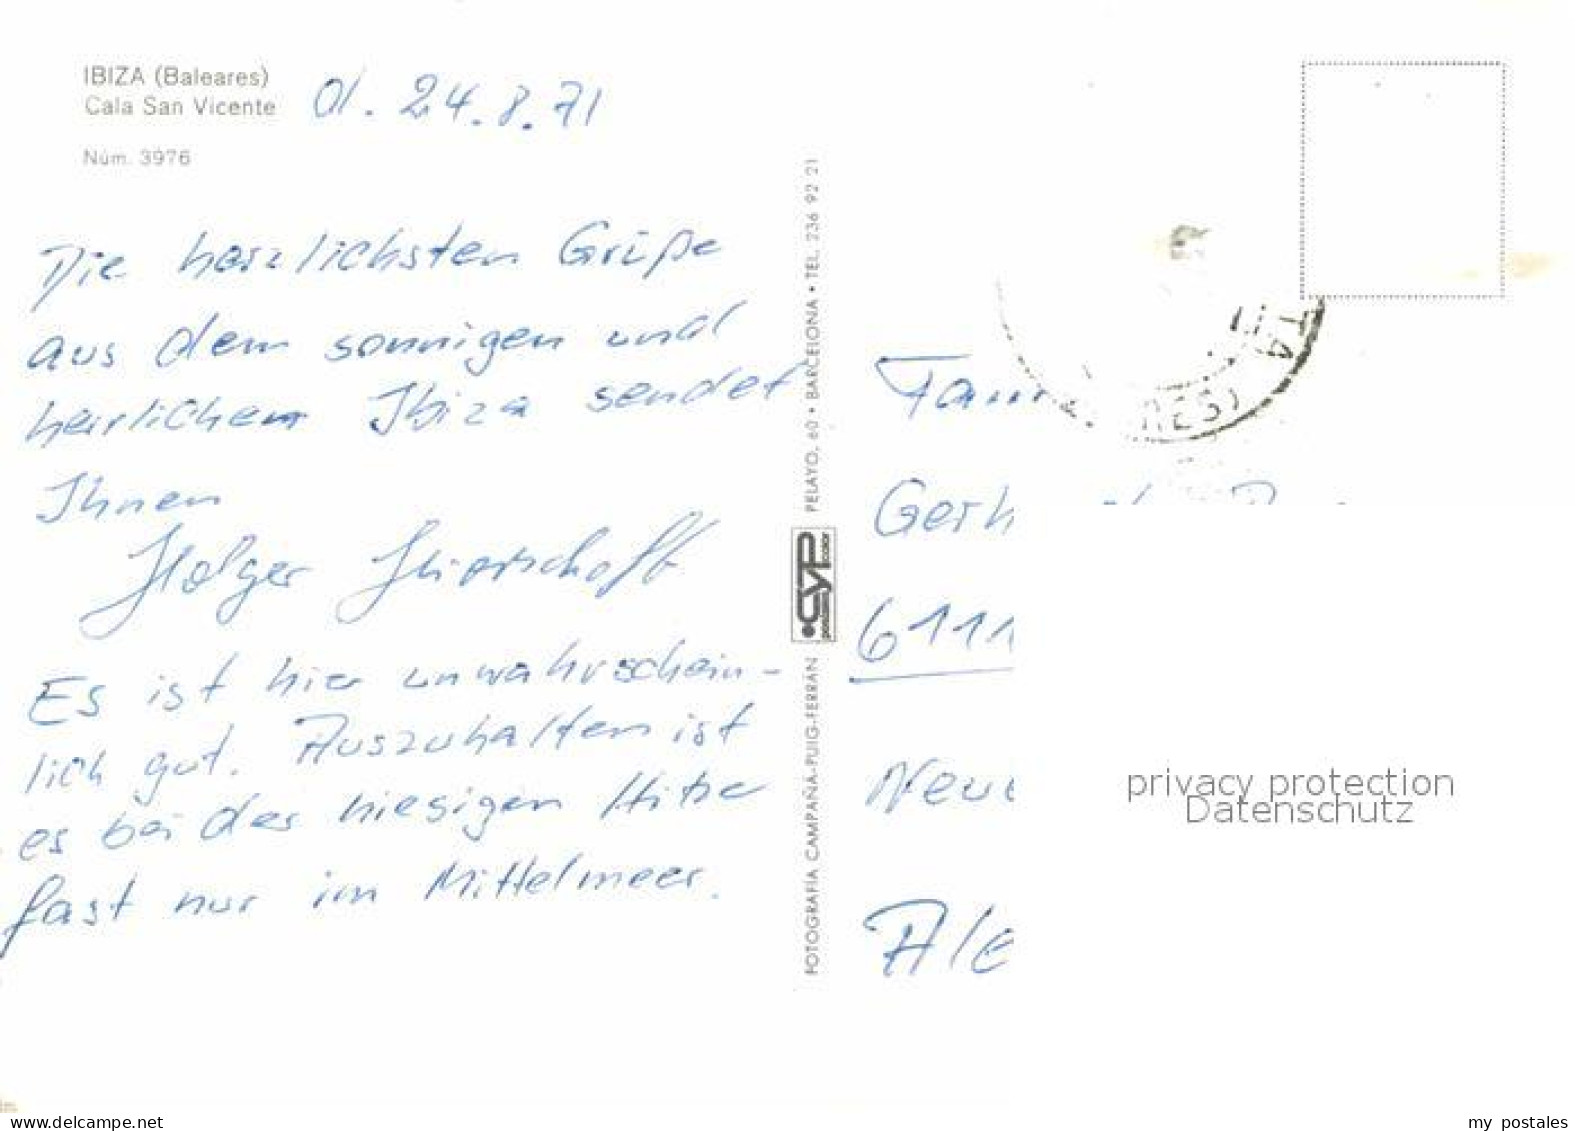 IBIZA (Baleares)
Cala San Vicente
Núm. 3976
d. 24.8.71
Die herzlichsten Grüße
aus dem sonnigen und
herrlichem Ibiza sendet
Ihnen
Holger
Es ist hier unwahrschein-
lich gut. Auszuhalten ist
es bei der hiesigen Hitze
fast nur im Mittelmeer.
FOTOGRAFIA CAMPAÑA-PUIG-FERRÁN
CYP
color
PELAYO, 60 • BARCELONA • TEL. 236 92 21
Fam
Gerh
6111
Neu
Ale
TA
RES)
privacy protection
Datenschutz
www.delcampe.net
my postales